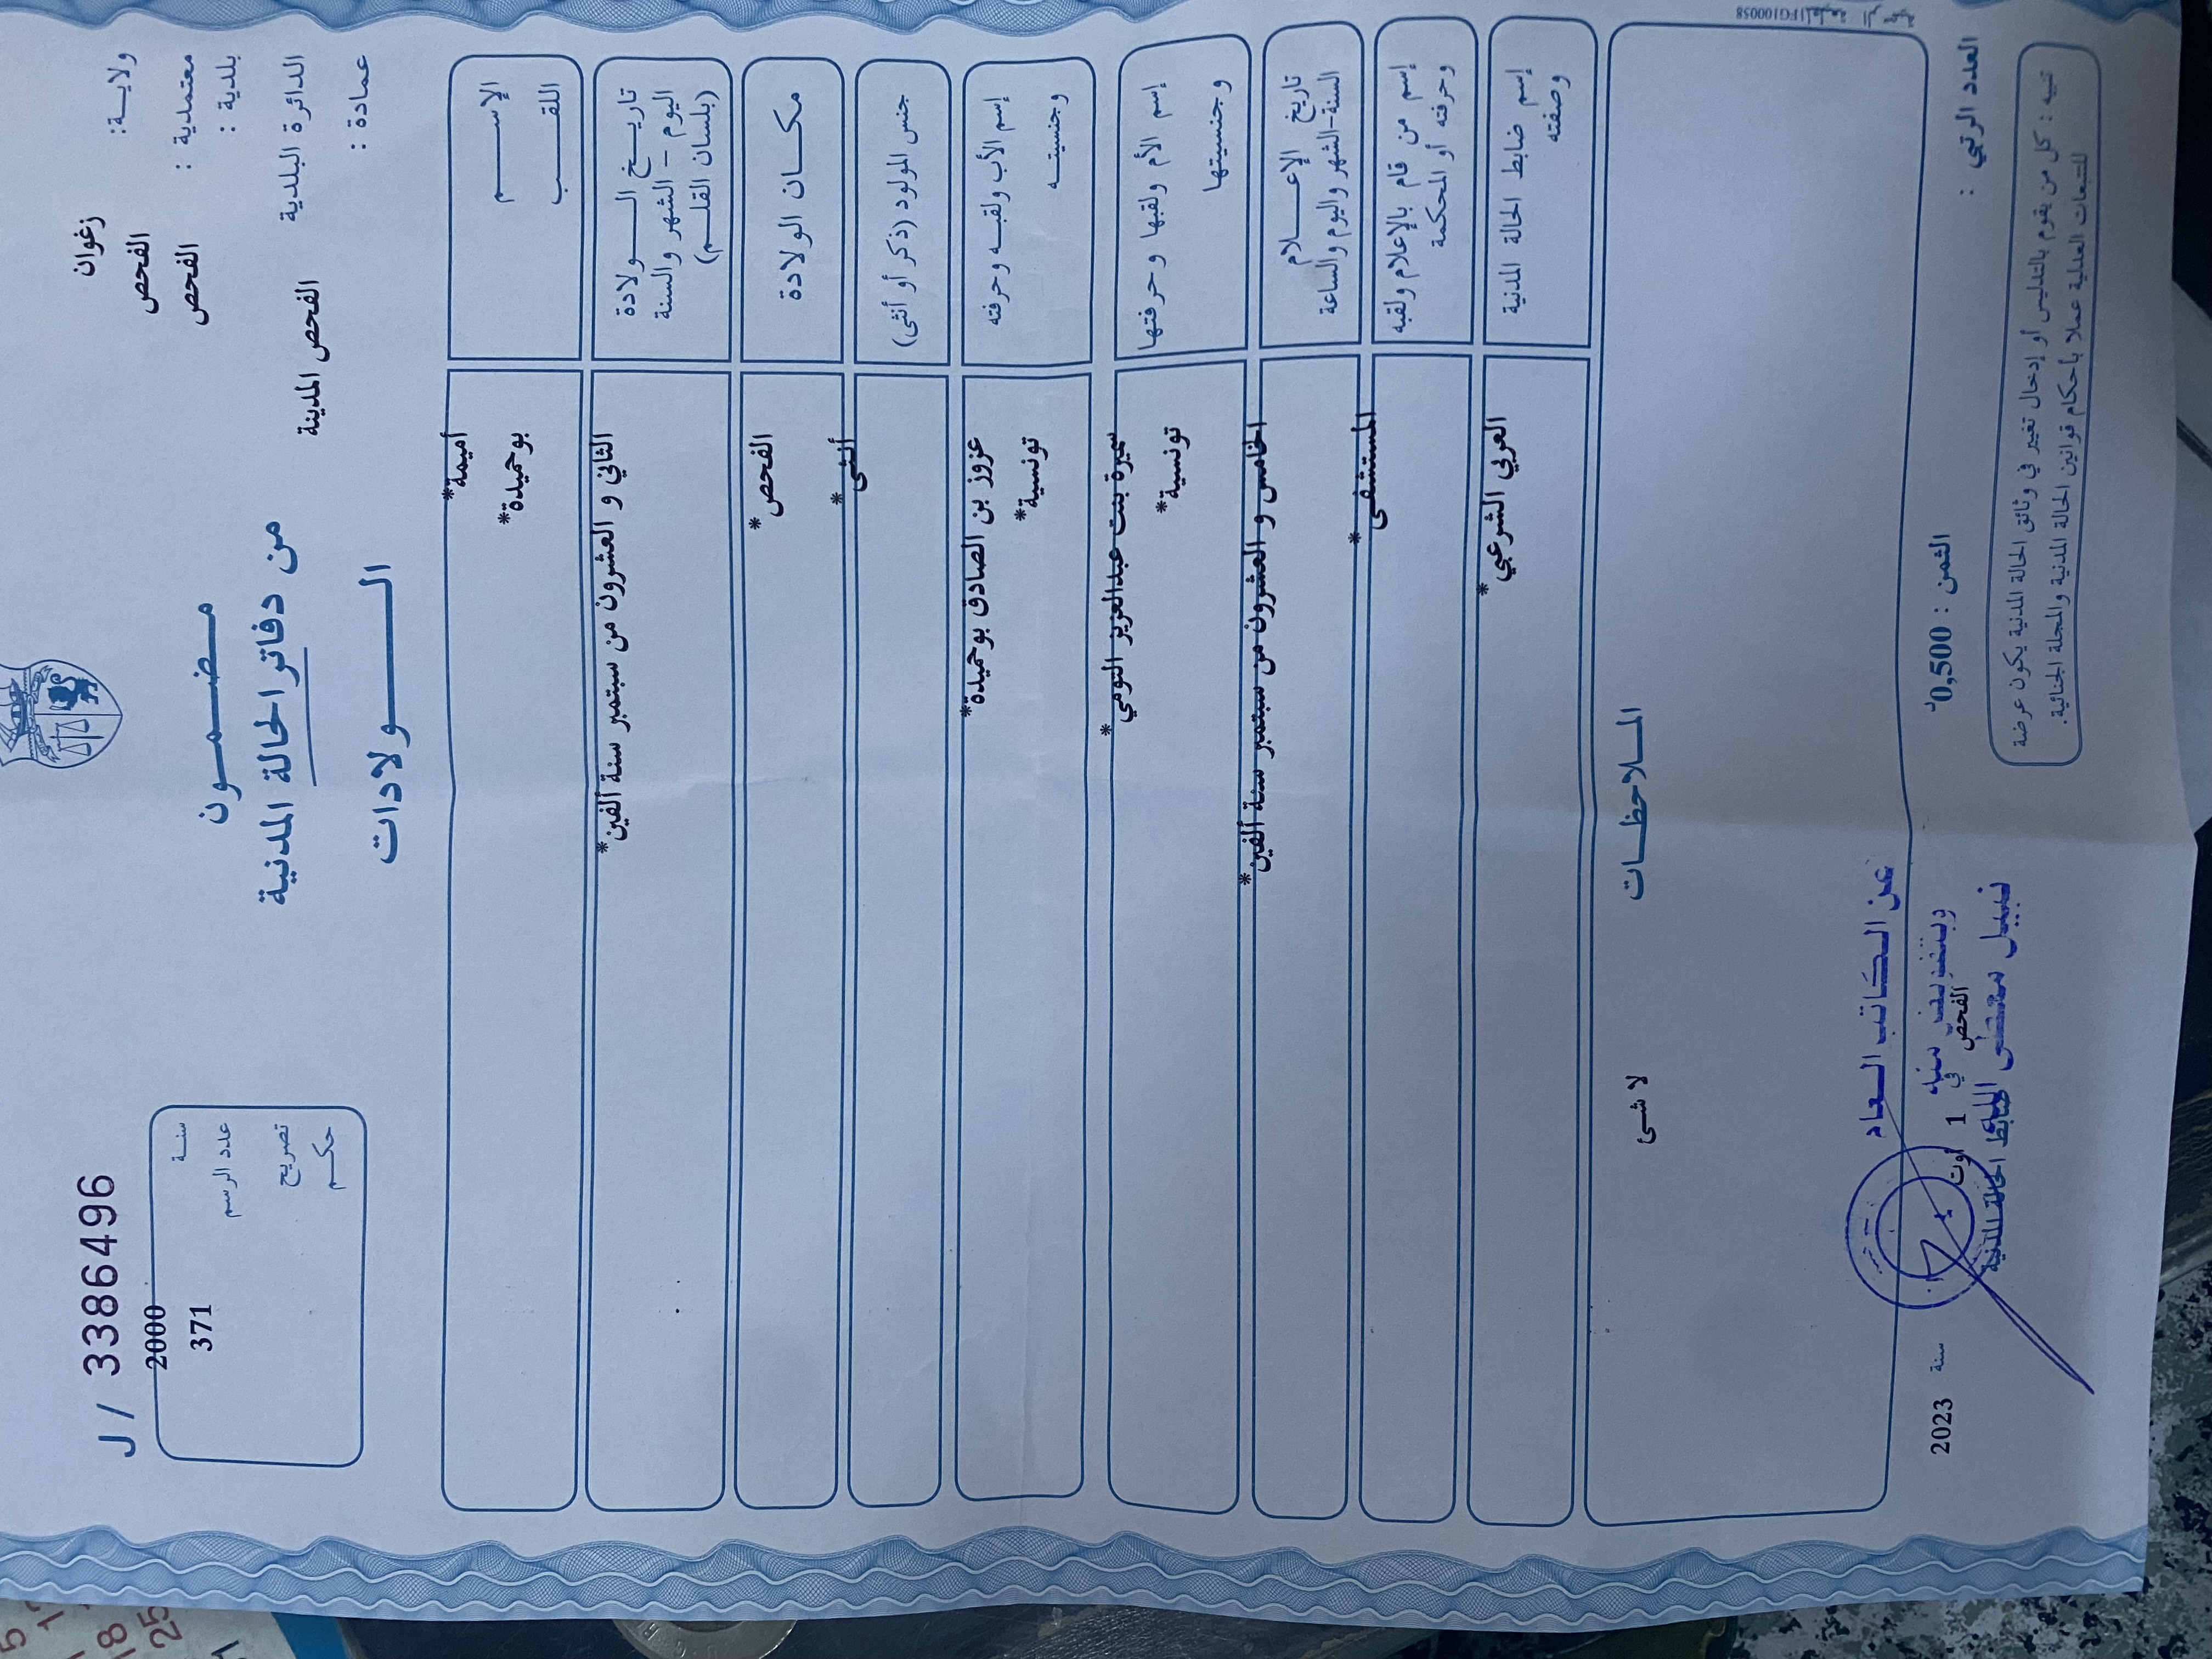 J / 33864496
ولايـة: زغوان
معتمدية : الفحص
بلدية : الفحص
الدائرة البلدية الفحص المدينة
عمادة :
مـضـمـون
من دفاتر الحالة المدنية
الـولادات
سنـة 2000
عدد الرسم 371
تصريح
حكـم
الإسـم أميمة*
اللقـب بوحميدة*
تاريـخ الـولادة الثاني و العشرون من سبتمبر سنة ألفين*
اليوم - الشهر والسنة
(بلسان القلـم)
مكـان الولادة الفحص*
جنس المولود (ذكر أو أنثى) أنثى*
إسم الأب ولقبـه وحرفته عزوز بن الصادق بوحميدة*
وجنسيتـه تونسية*
إسم الأم ولقبها وحرفتها سميرة بنت عبدالعزيز التومي*
وجنسيتها تونسية*
تاريخ الإعـلام الخامس و العشرون من سبتمبر سنة ألفين*
السنة-الشهر واليوم والساعة
إسم من قام بالإعلام ولقبه المستشفى*
وحرفته أو المحكمة
إسم ضابط الحالة المدنية العربي الشرعبي*
وصفته
المـلاحظـات
لا شئ
FG100058
العدد الرتبي :
الثمن : 0,500د
عن الكاتب العام
وبتفويض منه
الفحص في 1 أوت سنة 2023
نبيل
ضابط الحالة المدنية
تنبيه : كل من يقوم بالتدليس أو إدخال تغيير في وثائق الحالة المدنية يكون عرضة
للتتبعات العدلية عملا بأحكام قوانين الحالة المدنية والمجلة الجنائية.
18
25